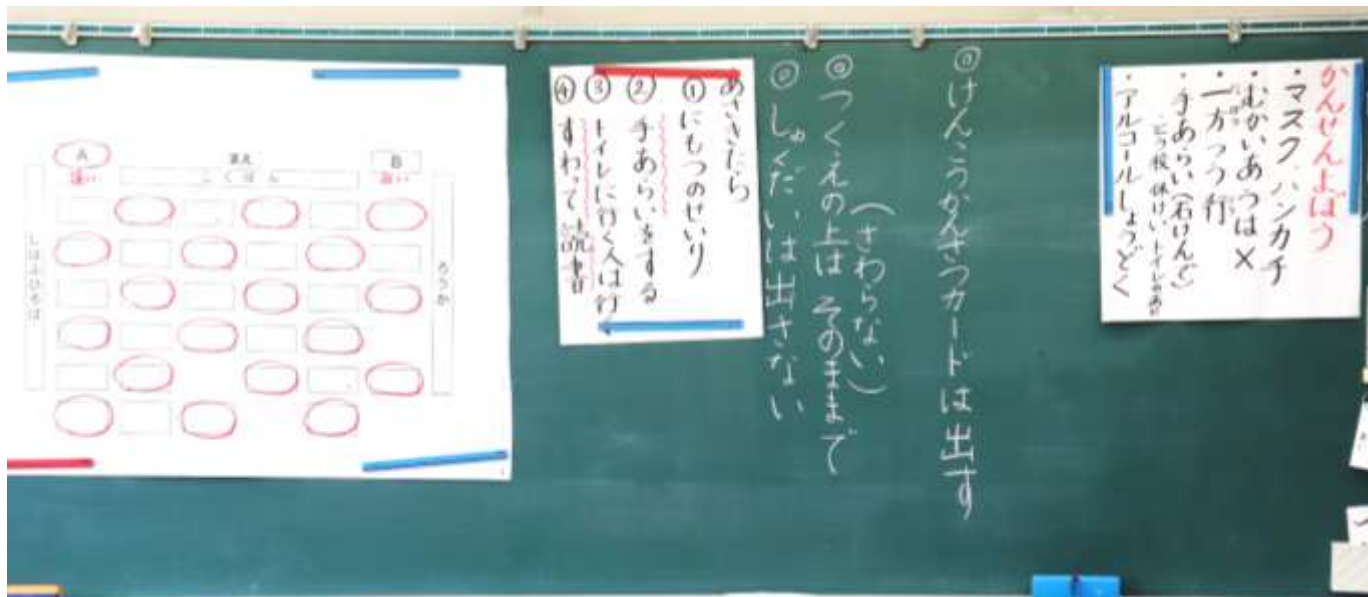 かんせんよぼう
・マスク ハンカチ
・むかいあうは×
・一方つう行
・手あらい(石けんで)
・アルコールしょうどく
◎けんこうかんさつカードは出す
◎つくえの上は そのままで
(さわらない)
◎しゅくだいは出さない
あさきたら
①にもつのせいり
②手あらいをする
③トイレに行く人は行く
④すわって読書
A
B
こくばん